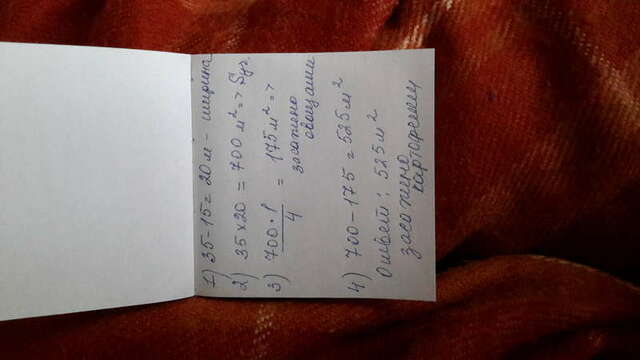 1) 35-15=20 м - ширина
2) 35×20=700 м²=> Sуч.
3) 700·1
4
= 175 м²=>
засажено
овощами
4) 700-175=525 м²
Ответ: 525 м²
засажено
картофелем